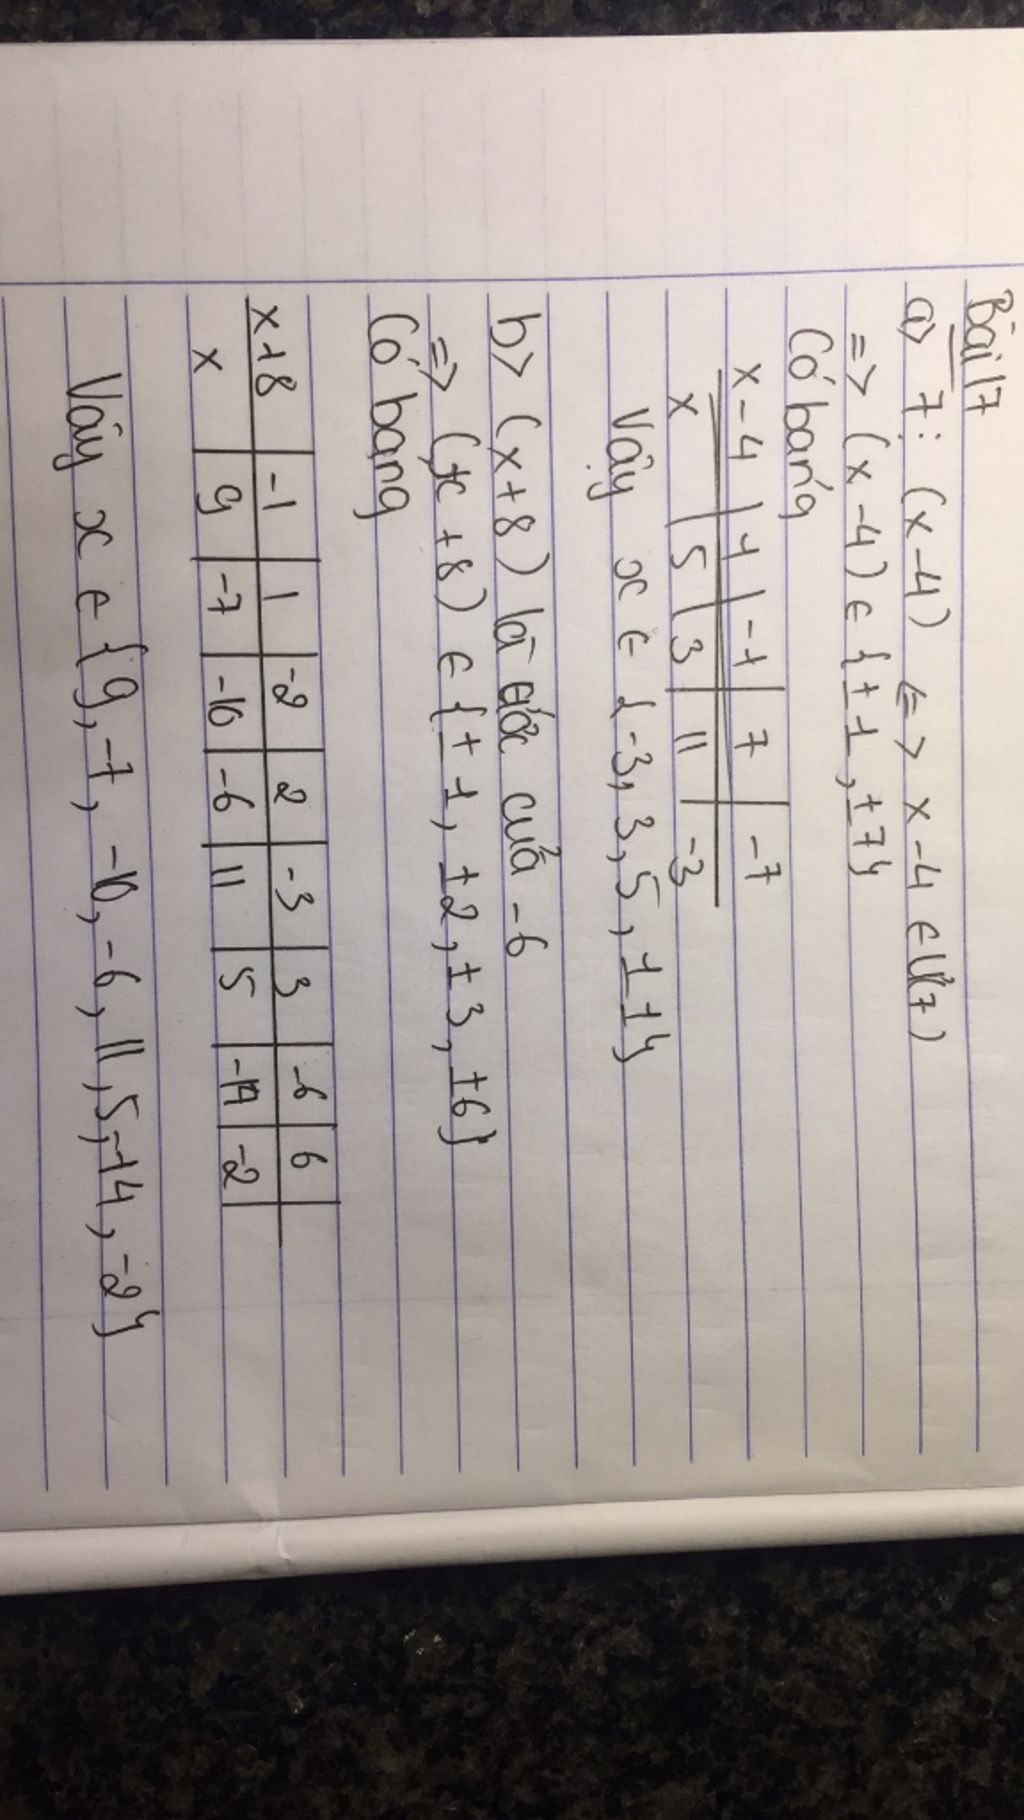 Bài 17
a> 7: (x-4) <=> x-4 ∈ Ư(7)
=> (x-4) ∈ {±1, ±7}
Có bảng
x-4 | 1 | -1 | 7 | -7
x | 5 | 3 | 11 | -3
Vậy x ∈ {-3, 3, 5, 11}
b> (x+8) là ước của -6
=> (x+8) ∈ {±1, ±2, ±3, ±6}
Có bảng
x+8 | -1 | 1 | -2 | 2 | -3 | 3 | -6 | 6
x | 9 | -7 | -10 | -6 | 11 | 5 | -14 | -2
Vây x ∈ {9, -7, -10, -6, 11, 5, -14, -2}